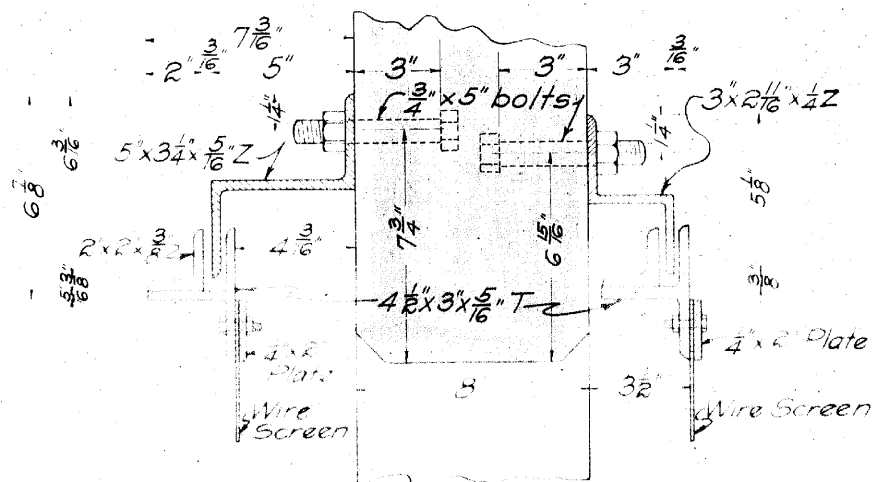 7 3/16"
2" 3/16" 5" 3" 3" 3" 3/16"
3/4" x 5" bolts
3" x 2 11/16" x 1/4 Z
1/4"
1/4"
5" x 3 1/4" x 5/16" Z
6 3/16"
6 7/8"
5 1/8"
7 3/4"
6 15/16"
4 3/16"
3/8"
4 1/2" x 3" x 5/16" T
1/4" x 2"
Plate
1/4" x 2" Plate
8
3 1/2"
Wire
Screen
Wire Screen